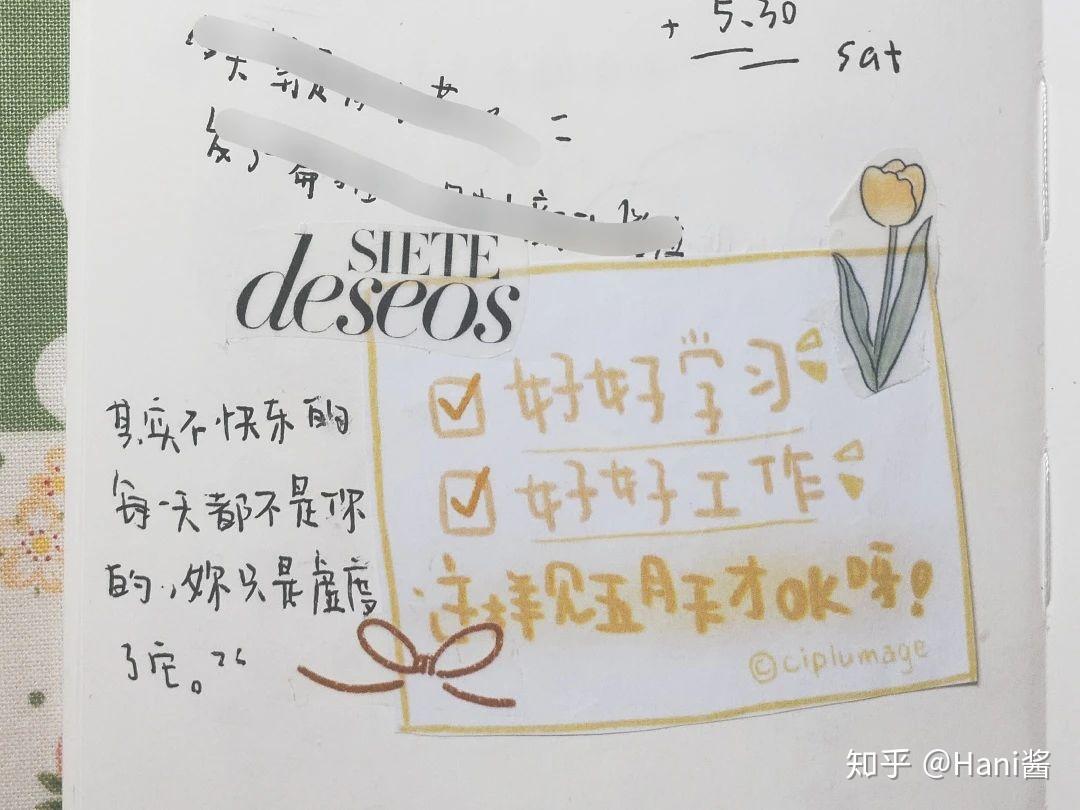 5.30
sat
SIETE
deseos
好好学习
好好工作
这样见五月天才OK呀!
©ciplumage
其实不快乐的
每一天都不是你
的,妳只是虚度
了它。
知乎 @Hani酱